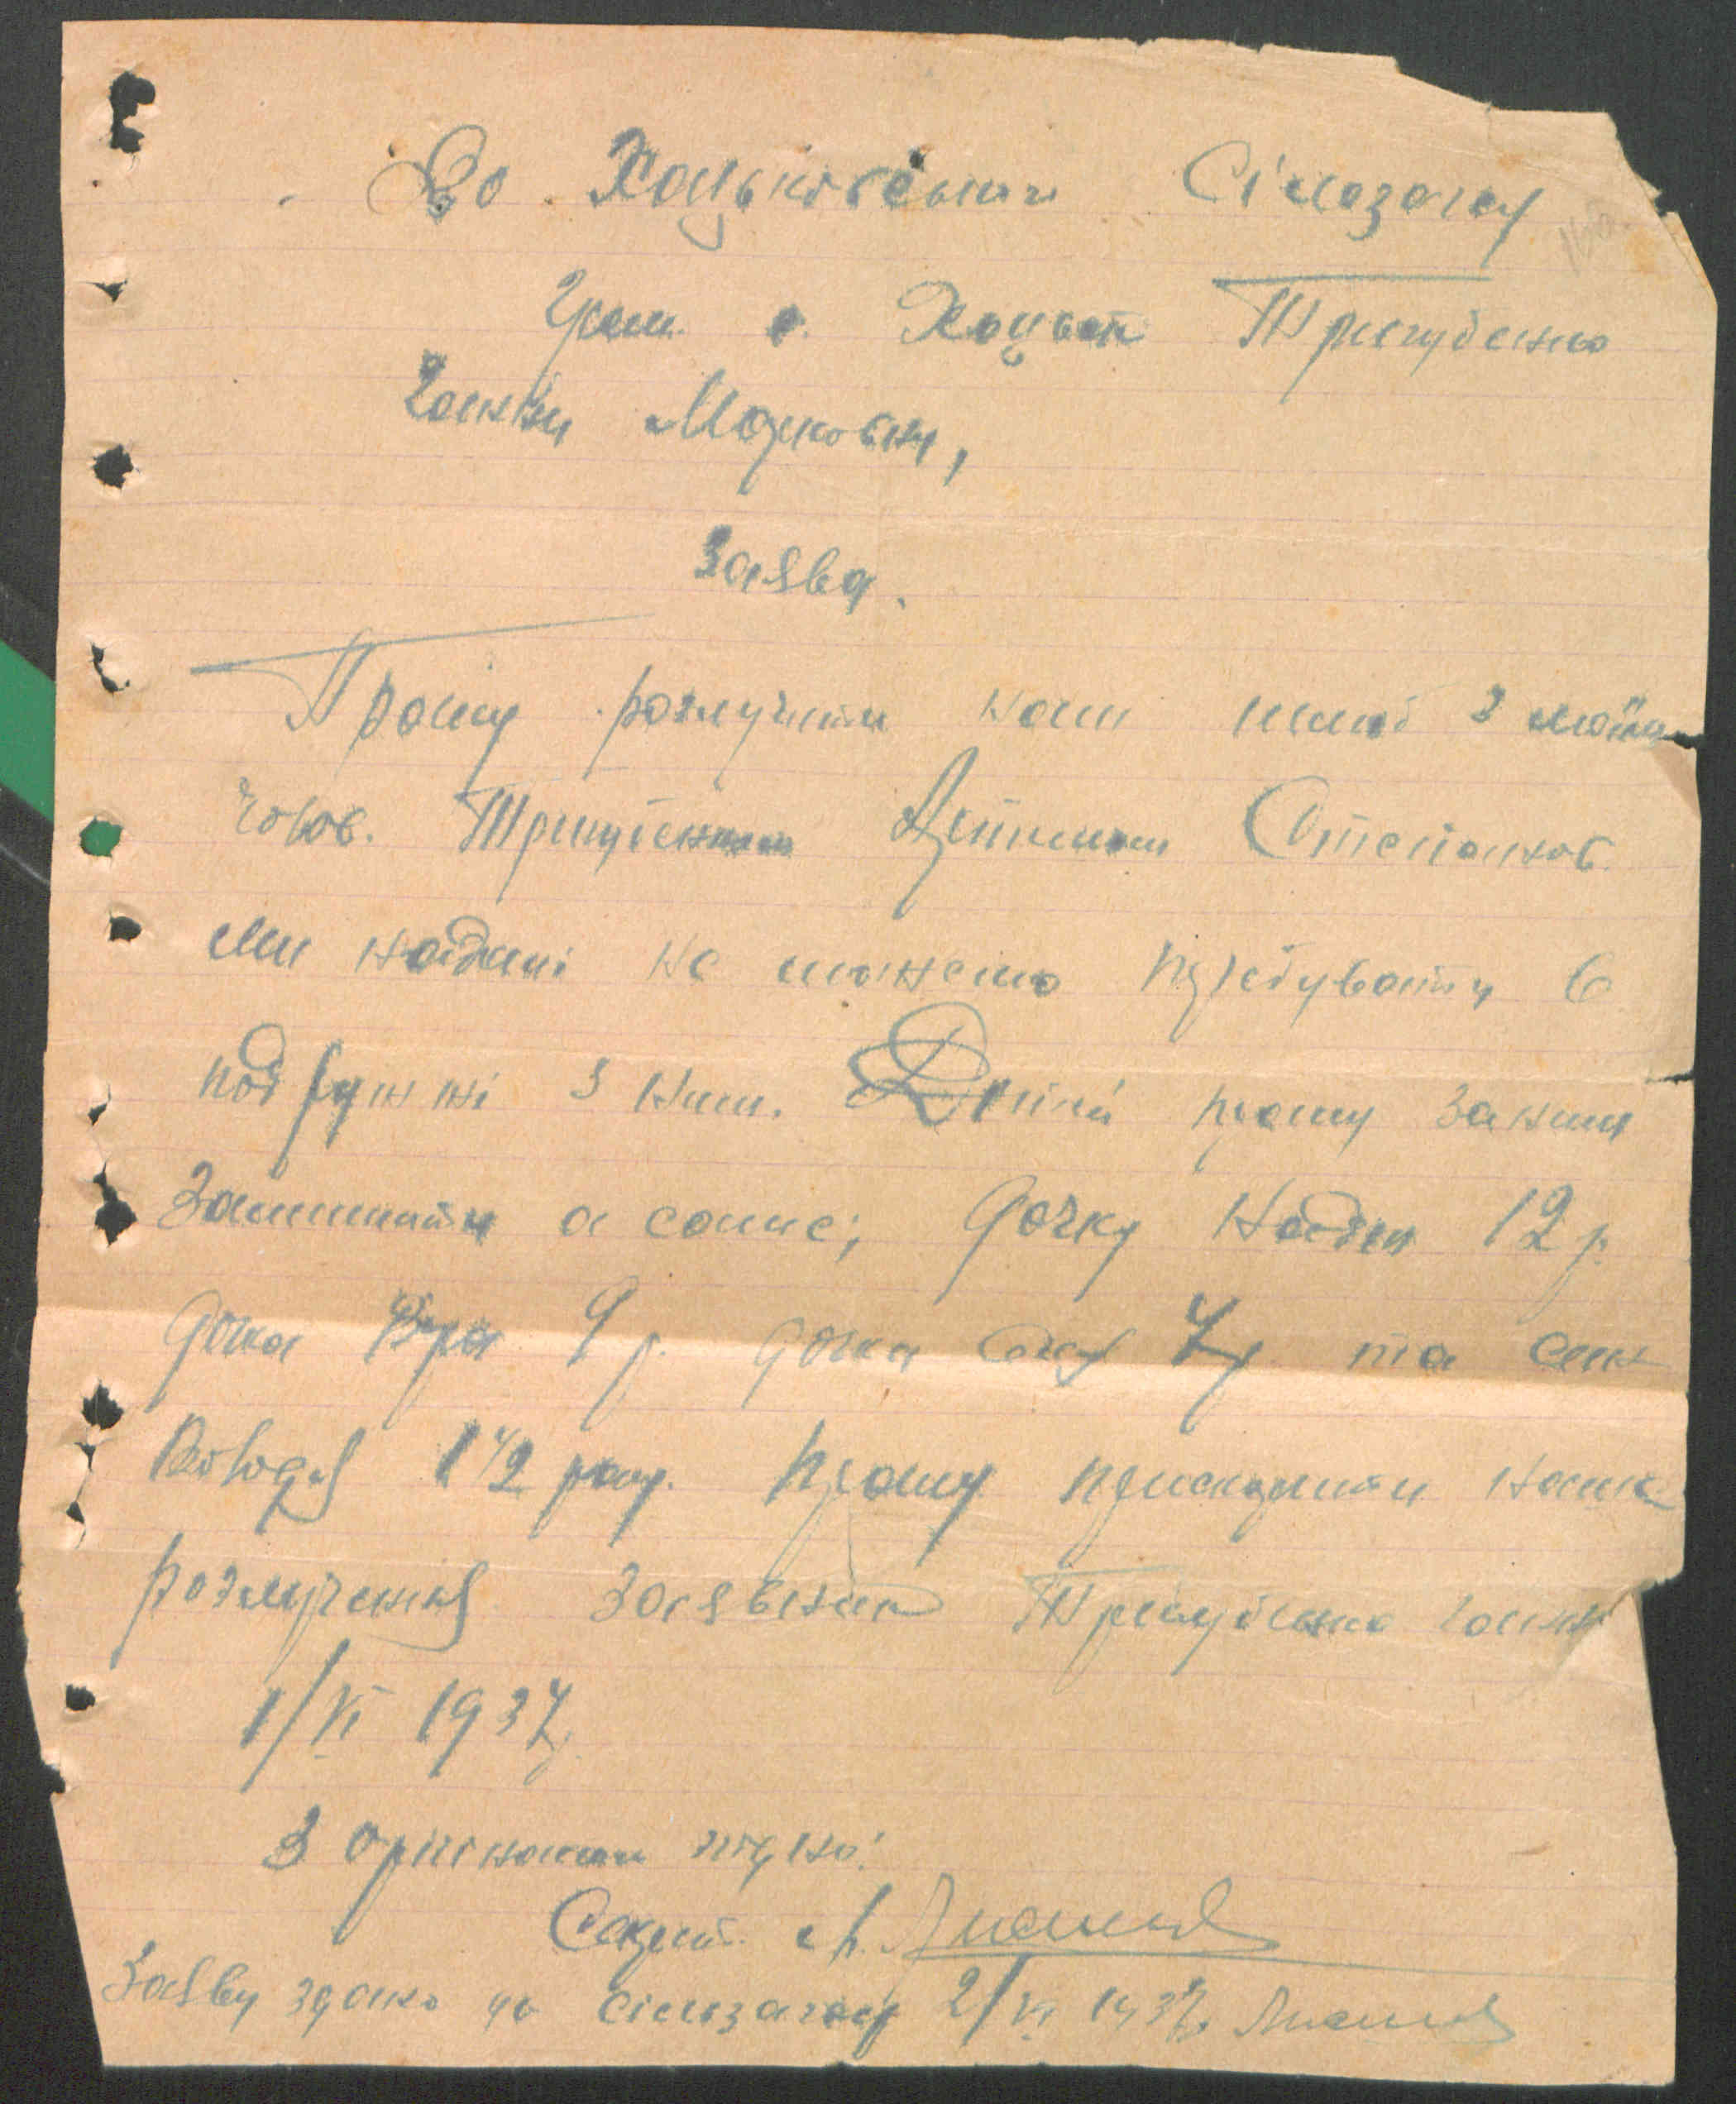 До Хоцьківського Сільзагсу
Гром. с. Хоцьок Тригубенко
Ганни Марковни,
Заява.
Прошу розлучити наш шлюб з моїм
чолов. Тригубенком Степанов.
Ми надалі не можемо перебувати в
подружжі з ним. Дітей прошу за ним
залишити а саме; дочку Надію 12 р.
дочка Віра 9 р. дочка 7 р. та син
Володя 1 1/2 року. Прошу прискорити наше
розлучення Заявник Тригубенко Ганна
1/VI 1937 р.
З оригіналом згідно:
Секрет.
Заяву здано до сільзагсу 2/VI 1937 р.